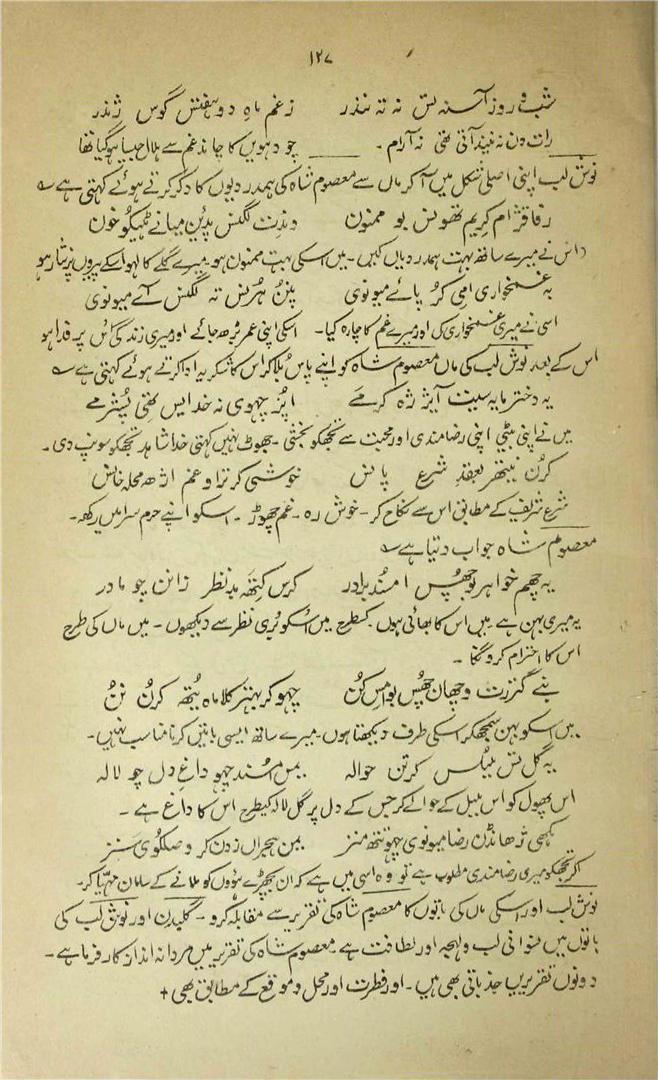 ۱۲۷
شب و روز آسنہ تس نہ تہ نندر زغم ماہِ دو ہفتش گوس ژندر
رات دن نہ نیند آتی تھی نہ آرام ۔ چودہویں کا چاند غم سے ہلال جیسا ہو گیا تھا
نوش لب اپنی اصلی شکل میں آکر ماں سے معصوم شاہ کی ہمدردیوں کا ذکر کرتے ہوئے کہتی ہے
رفاقژ ام کریم تھوس بو ممنون دندِت لگنس پدٮ۪ن میانے ٹھیکو خون
اس نے میرے ساتھ بہت ہمدردیاں کیں ۔ میں اسکی بہت ممنون ہوں میرے گلے کا لہو اسکے پیروں پر نثار ہو
بہ غمخواری امی کر پائے میونوی پنن تہ لگنس آے میونوی
اسی نے میری غمخواری کی اور میرے غم کا چارہ کیا ۔ اسکی اپنی عمر بڑھ جائے اور میری زندگی اس پر فدا ہو
اس کے بعد نوش لب کی ماں معصوم شاہ کو اپنے پاس بُلا کر اس کا شکریہ ادا کرتے ہوئے کہتی ہے
یہ دختر مایہ سیت آیژ ژہ کرمے اپز چھوی نہ خدایس پشرمے
میں نے اپنی بیٹی اپنی رضامندی اور محبت سے تجھکو بخشی ۔ جھوٹ نہیں کہتی خدا شاہد تجھکو سونپ دی ۔
کرن بعقدِ شرع پانس خوشی کر تراو غم اژھ محلہ خانس
شرع شریف کے مطابق اس سے نکاح کر ۔ خوش رہ ۔ غم چھوڑ ۔ اسکو اپنے حرم سرا میں رکھ ۔
معصوم شاہ جواب دیتا ہے
یہ چھم خواہر بو چھس امسُند برادر کرس کیتھہ بد نظر زانن چو مادر
یہ میری بہن ہے میں اس کا بھائی ہوں کسطرح میں اسکو بُری نظر سے دیکھوں ۔ میں ماں کی طرح
اس کا احترام کرونگا ۔
بنے گنزرت وچھان چھس بو امس کن چھو کر بہتر کلاماہ یتھ کرن نن
میں اسکو بہن سمجھ کر اسکی طرف دیکھتا ہوں ۔ میرے ساتھ ایسی باتیں کرنا مناسب نہیں ۔
یہ گل تس بلبلس کرتن حوالہ یمس سند چھو داغِ دل چو لالہ
اس پھول کو اس بلبل کے حوالے کر جس کے دل پر گل لالہ کیطرح اس کا داغ ہے ۔
ژھانڈن رضا میونوی چھو یتھ منز یمن ہجراں زدن کر وصلکوی سنز
اگر تجھکو میری رضامندی مطلوب ہے تو وہ اسی میں ہے کہ ان بچھڑے ہوؤں کو ملانے کے سامان مہیا کر ۔
نوش لب اور اسکی ماں کی باتوں کا معصوم شاہ کی تقریر سے مقابلہ کرو ۔ گلبدن اور نوش لب کی
باتوں میں نسوانی لب ولہجہ اور لطافت ہے معصوم شاہ کی تقریر میں مردانہ انداز کارفرما ہے ۔
دونوں تقریریں جذباتی بھی ہیں ۔ اور فطرت اور محل و موقع کے مطابق بھی +